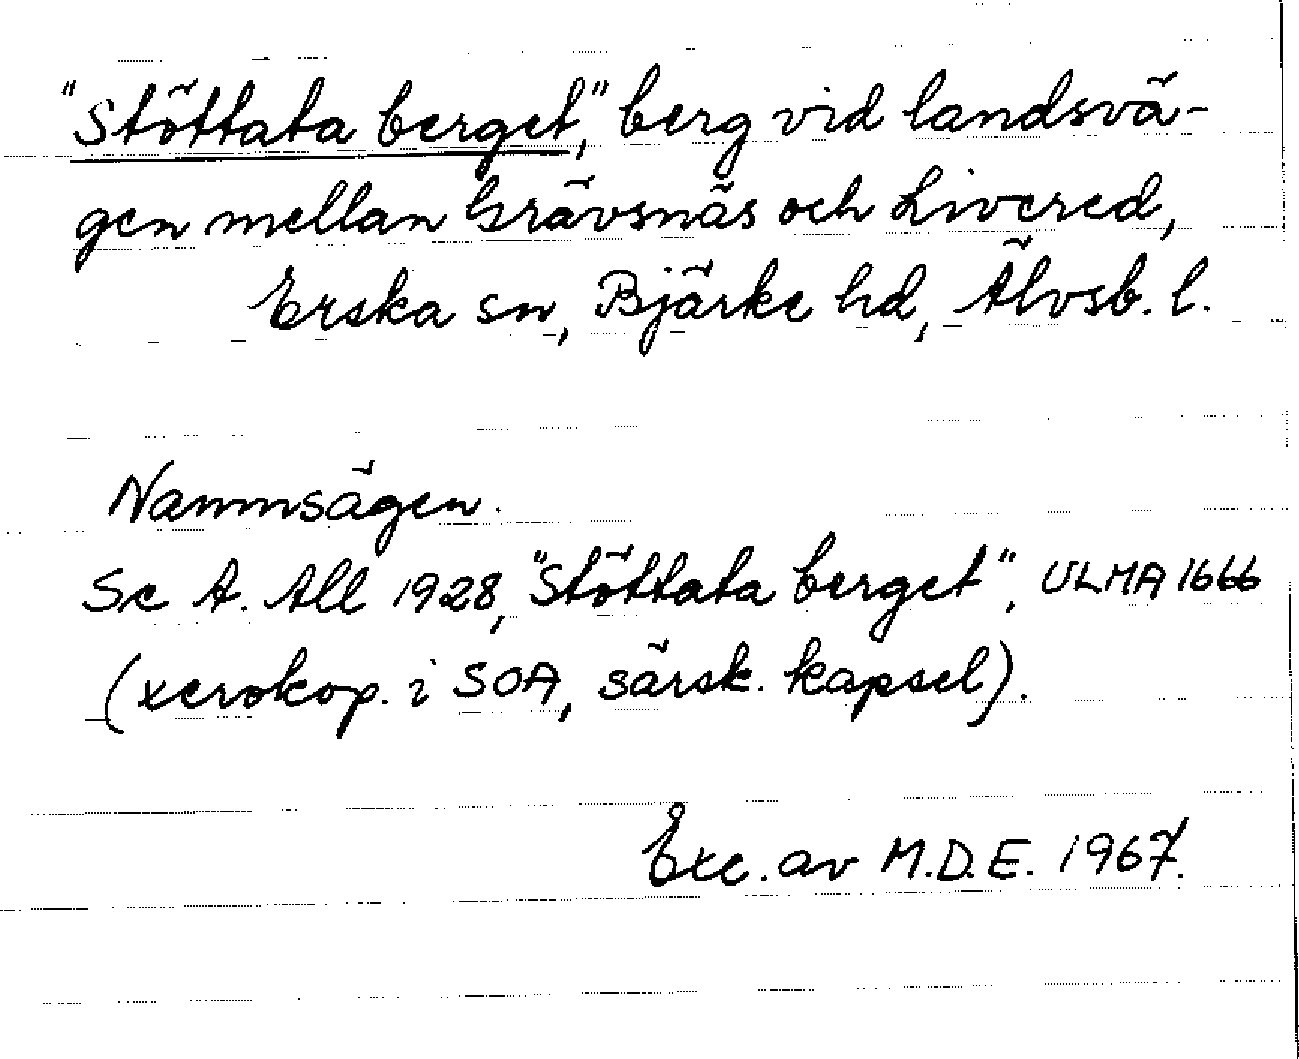 "Stöttata berget," berg vid landsvä-
gen mellan Grävsnäs och Livered,
Erska sn, Bjärke hd, Älvsb. l.
Namnsägen.
Se A. All 1928, "Stöttata berget", ULMA 1666
(xerokop. i SOA, särsk. kapsel).
Exc. av M.D.E. 1967.